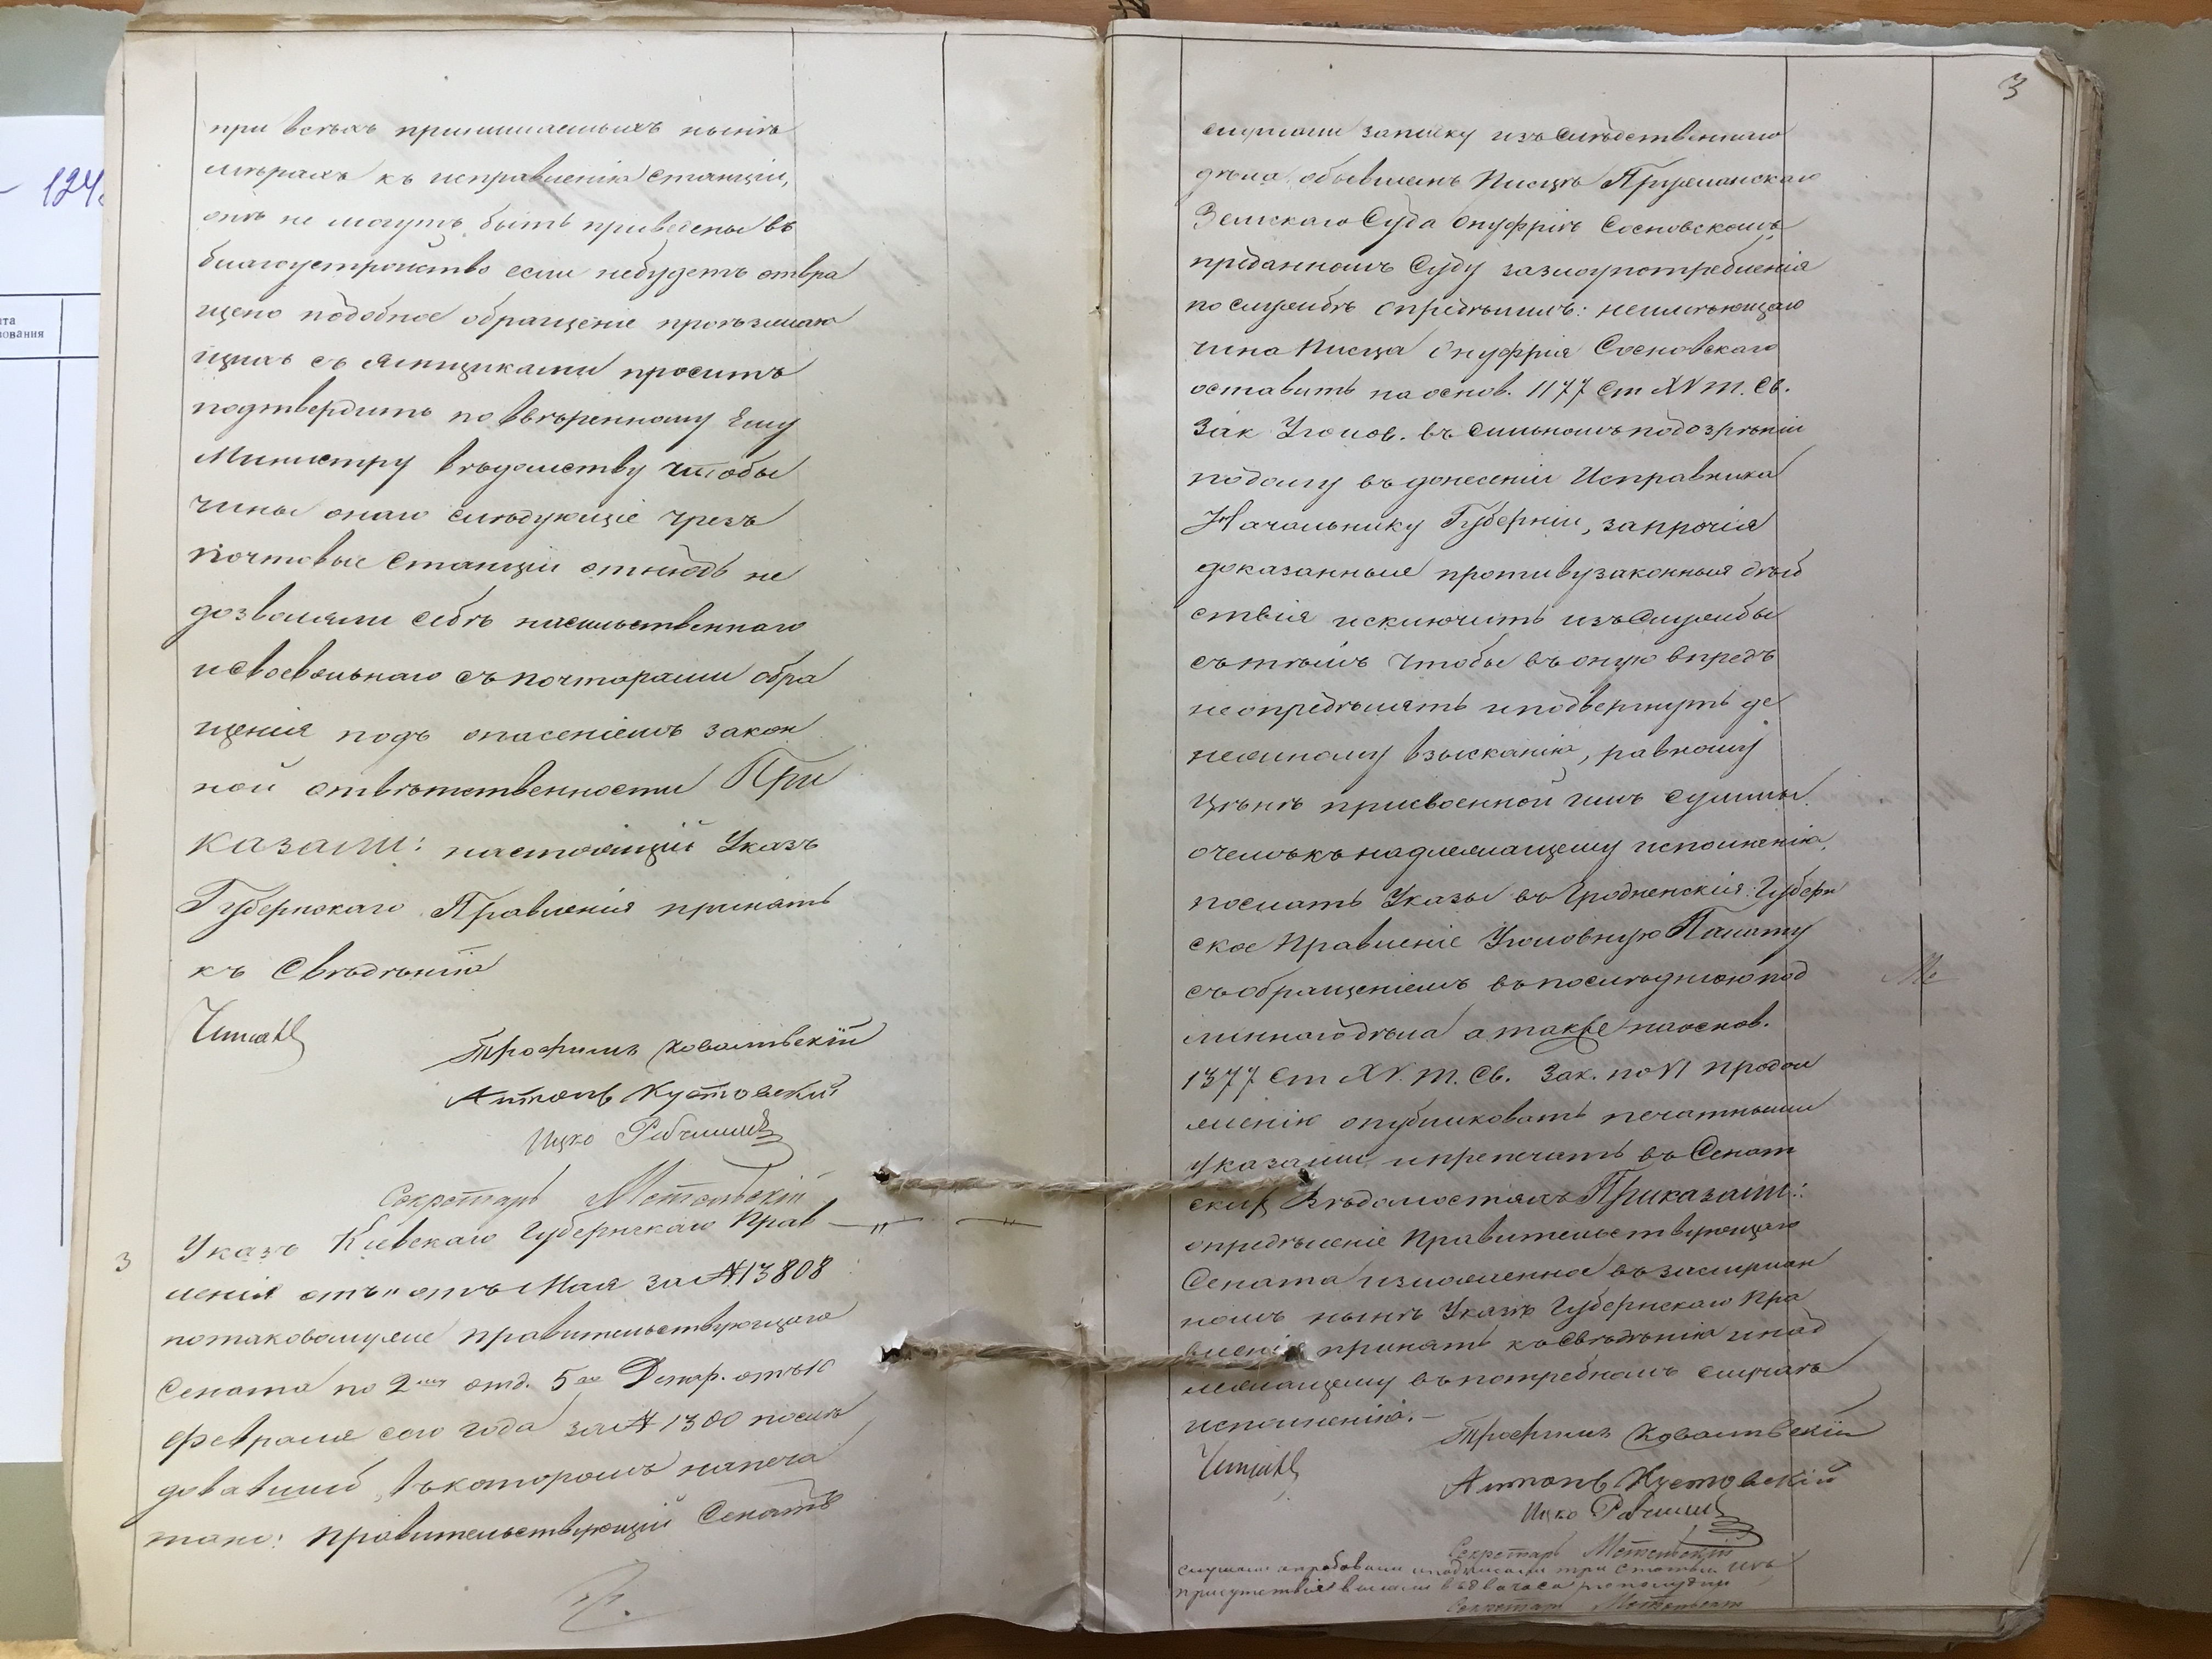 124
та
ования
при всѣхъ принимаемыхъ нынѣ
мѣрахъ къ исправленію станціи,
онѣ не могутъ быть приведены въ
благоустройство если небудетъ отвра
щено подобное обращеніе проѣзжаю
щихъ съ Ямщиками проситъ
подтвердить по ввѣренному Ему
Министру вѣдомству чтобы
чины онаго слѣдующіе чрезъ
почтовые станціи отнюдь не
дозволяли себѣ насильственнаго
и своевольнаго съ почтарами обра
щенія подъ опасеніемъ закон
ной отвѣтственности При
казали: настоящій Указъ
Губернскаго Правленія принять
къ Свѣдѣнію
Читалъ
Трофимъ Ковальвскій
Антонъ Кустовскій
Ицко Рабчинскій
Секретарь Мотельскій
3
Указъ Кіевскаго Губернскаго Прав
ленія отъ " отъ Мая за № 13808
потаковомуже правительствующаго
Сената по 2му отд. 5го Департ. отъ 10
февраля сего года за № 1300 послѣ
довавшій въ которомъ напеча
тано: Правительствующій Сенатъ
3
слушали записку изъ слѣдственнаго
дѣла объ бывшемъ Писцѣ Пружанскаго
Земскаго Суда Онуфріѣ Сосновскомъ
преданномъ Суду за злоупотребленія
по службѣ опредѣлилъ: неимѣющаго
чина Писца Онуфрія Сосновскаго
оставить на основ. 1177 ст XV т. Св.
Зак Уголов. въ сильномъ подозрѣніи
подлогу въ донесеніи Исправника
Начальнику Губерніи, за прочія
доказанныя противузаконныя дѣй
ствія исключить изъ Службы
съ тѣмъ чтобы въ оную впредь
не опредѣлять и подвергнуть де
нежному взысканію, равному
Цѣнѣ присвоенной имъ суммы.
о чемъ къ надлежащему исполненію
послать Указы въ Гродненскія: Губерн
ское Правленіе Уголовную Палату
съ обращеніемъ въ послѣднюю под
линнаго дѣла а также на основ.
1377 ст XV. т. Св. Зак. по VI продол
женію опубликовать печатными
указами, и препечать въ Сенат
скиҳ Вѣдомостяхъ Приказали:
опредѣленіе Правительствующаго
Сената изложенное въ заслушан
номъ нынѣ Указѣ Губернскаго Пра
вленія принять къ Свѣдѣнію и над
лежащему въ потребномъ случаѣ
исполненію. —
Трофимъ Ковальвскій
Читалъ
Антонъ Кустовскій
Ицко Рабчинскій
Секретарь Мотельскій
слушали апробовали и подписали три статьи изъ
присутствія вышли въ два часа по полудни
Секретарь Мотельскій